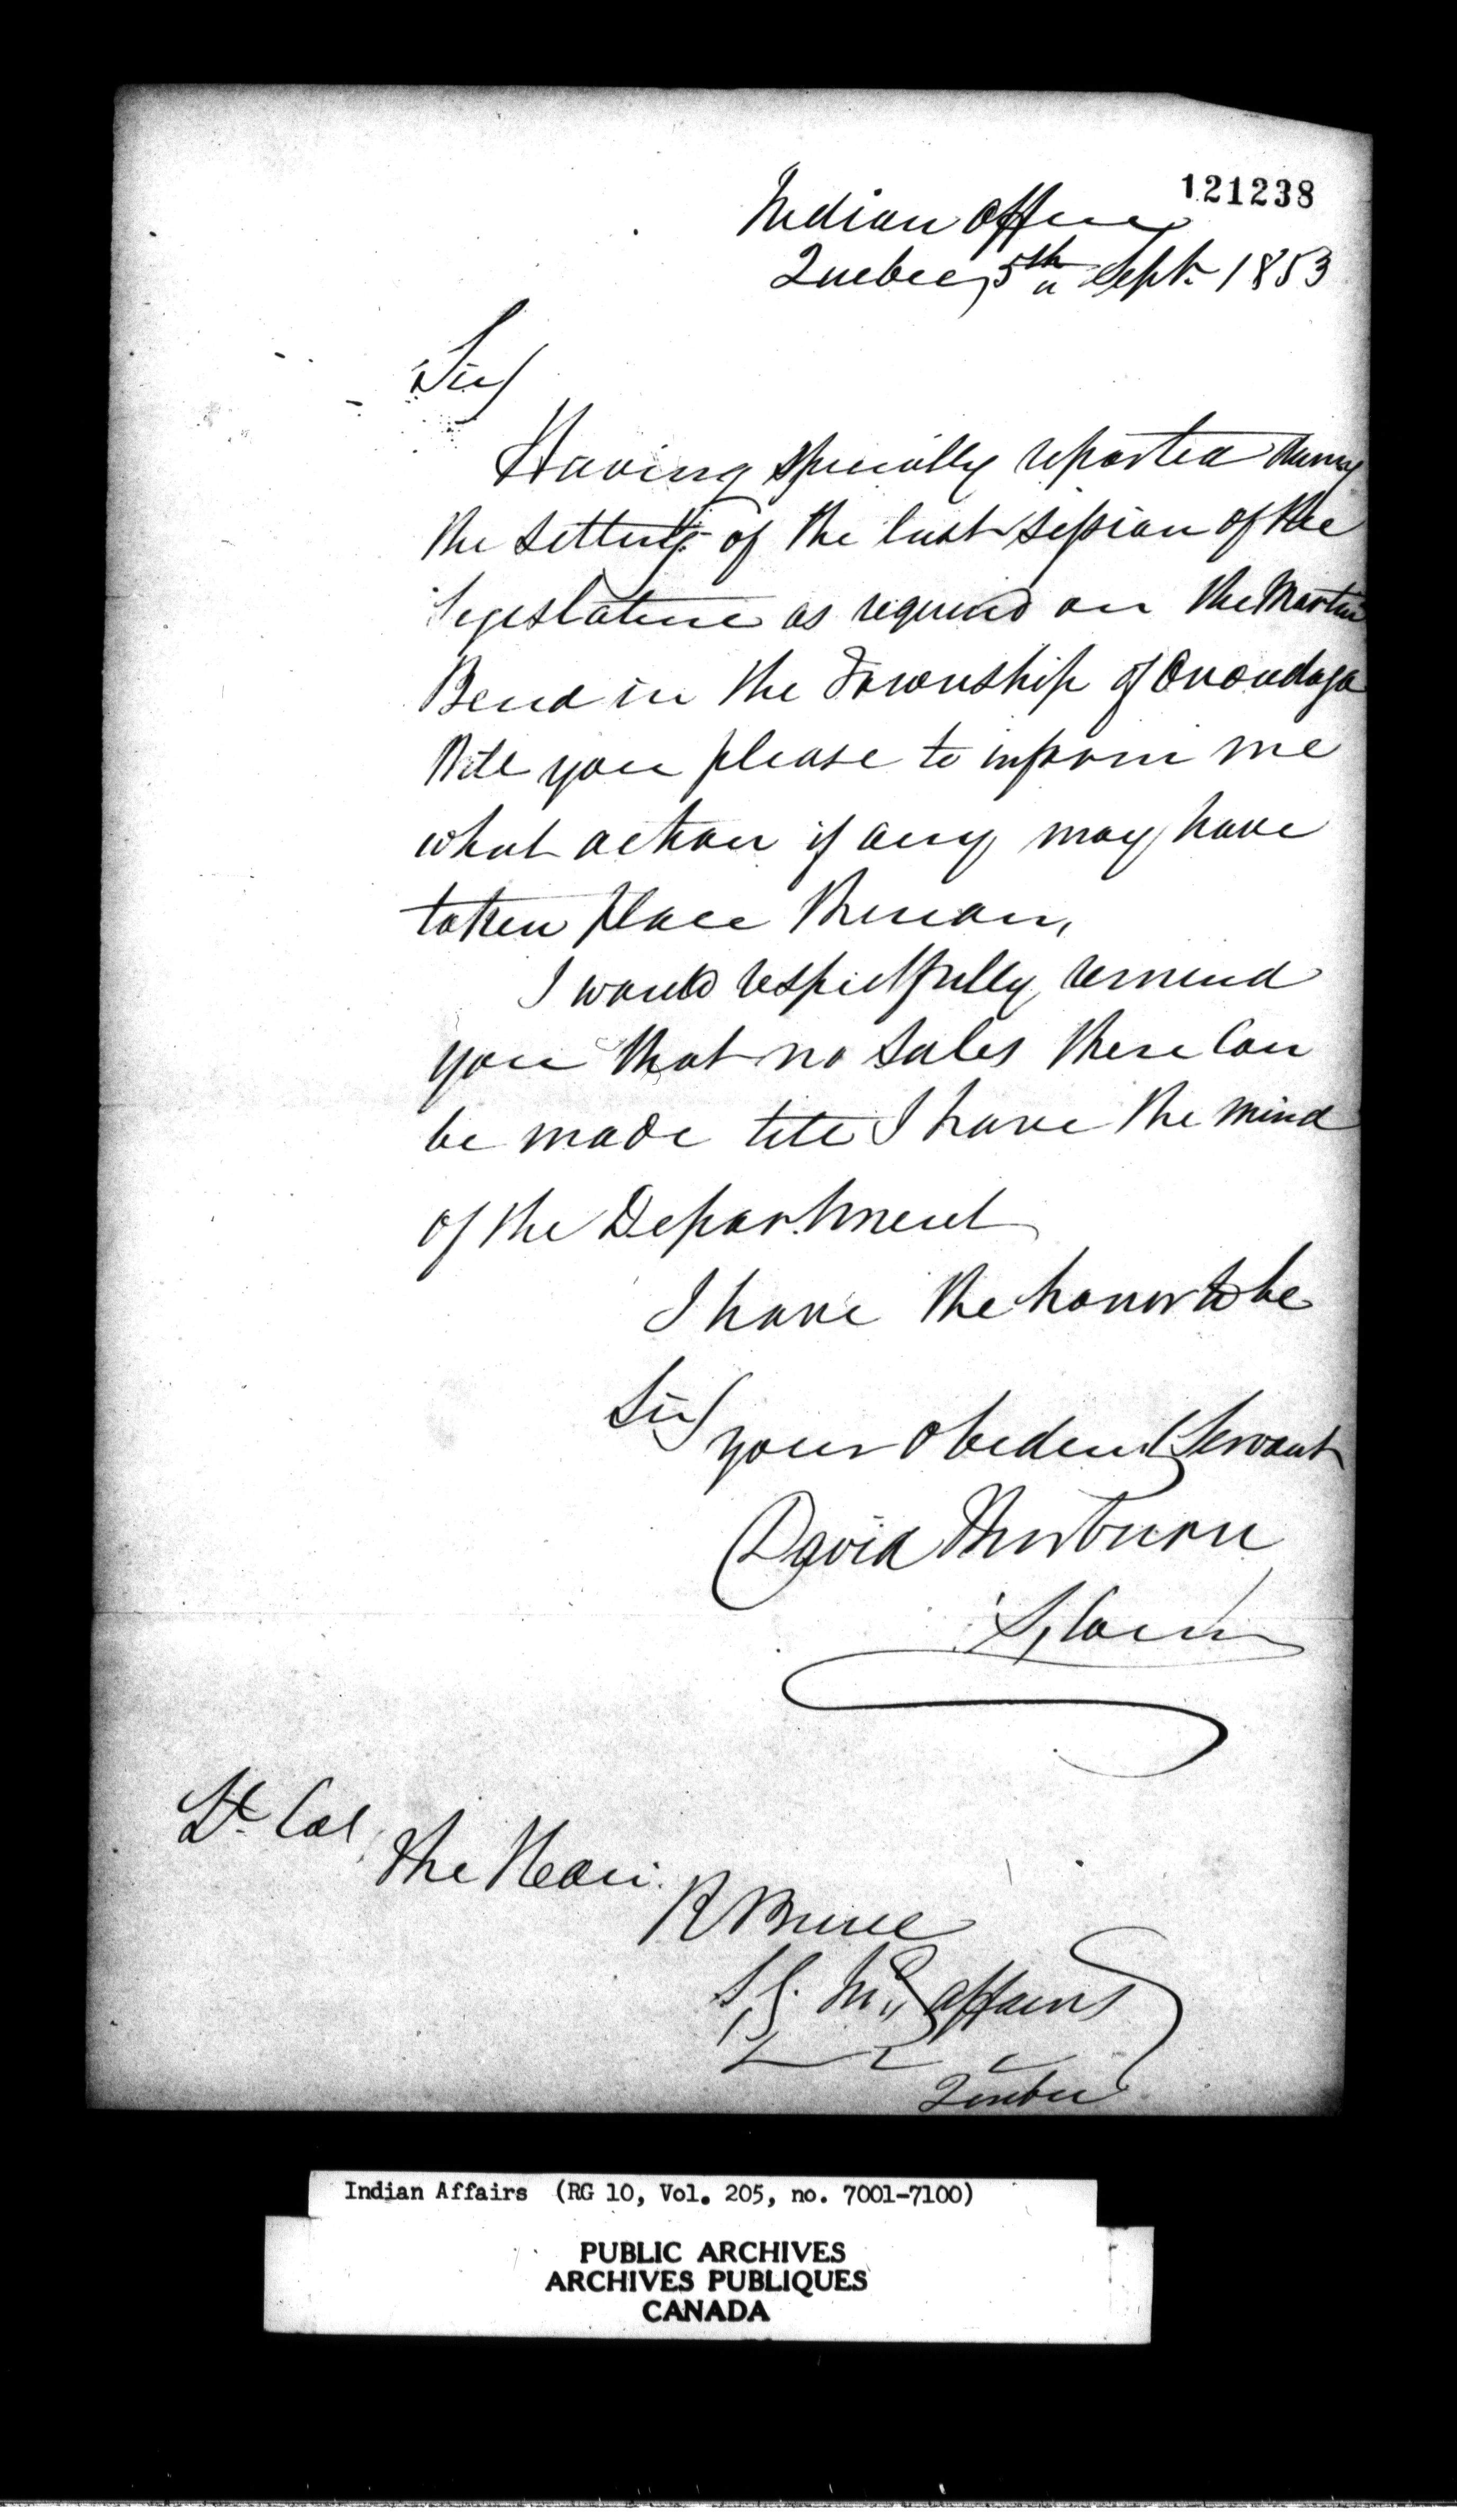 121238
Indian Office
Quebec, 5th Sept. 1853
Sir/
Having specially reported during
the sitting of the last Session of the
Legislature as required on the Martin
Bend in the Township of Onondaga
Will you please to inform me
what action if any may have
taken place thereon,
I would respectfully remind
you that no sales there can
be made till I have the mind
of the Department
I have the honor to be
Sir/
your obedient Servant
David Thorburn
Lt. Col,
the Hon.
R Bruce
S. G. In. affairs
Quebec
Indian Affairs (RG 10, Vol. 205, no. 7001-7100)
PUBLIC ARCHIVES
ARCHIVES PUBLIQUES
CANADA